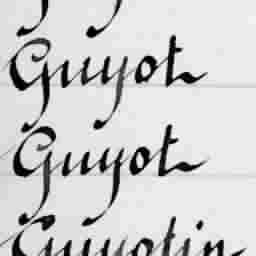 Guyot
Guyot
Guyotin